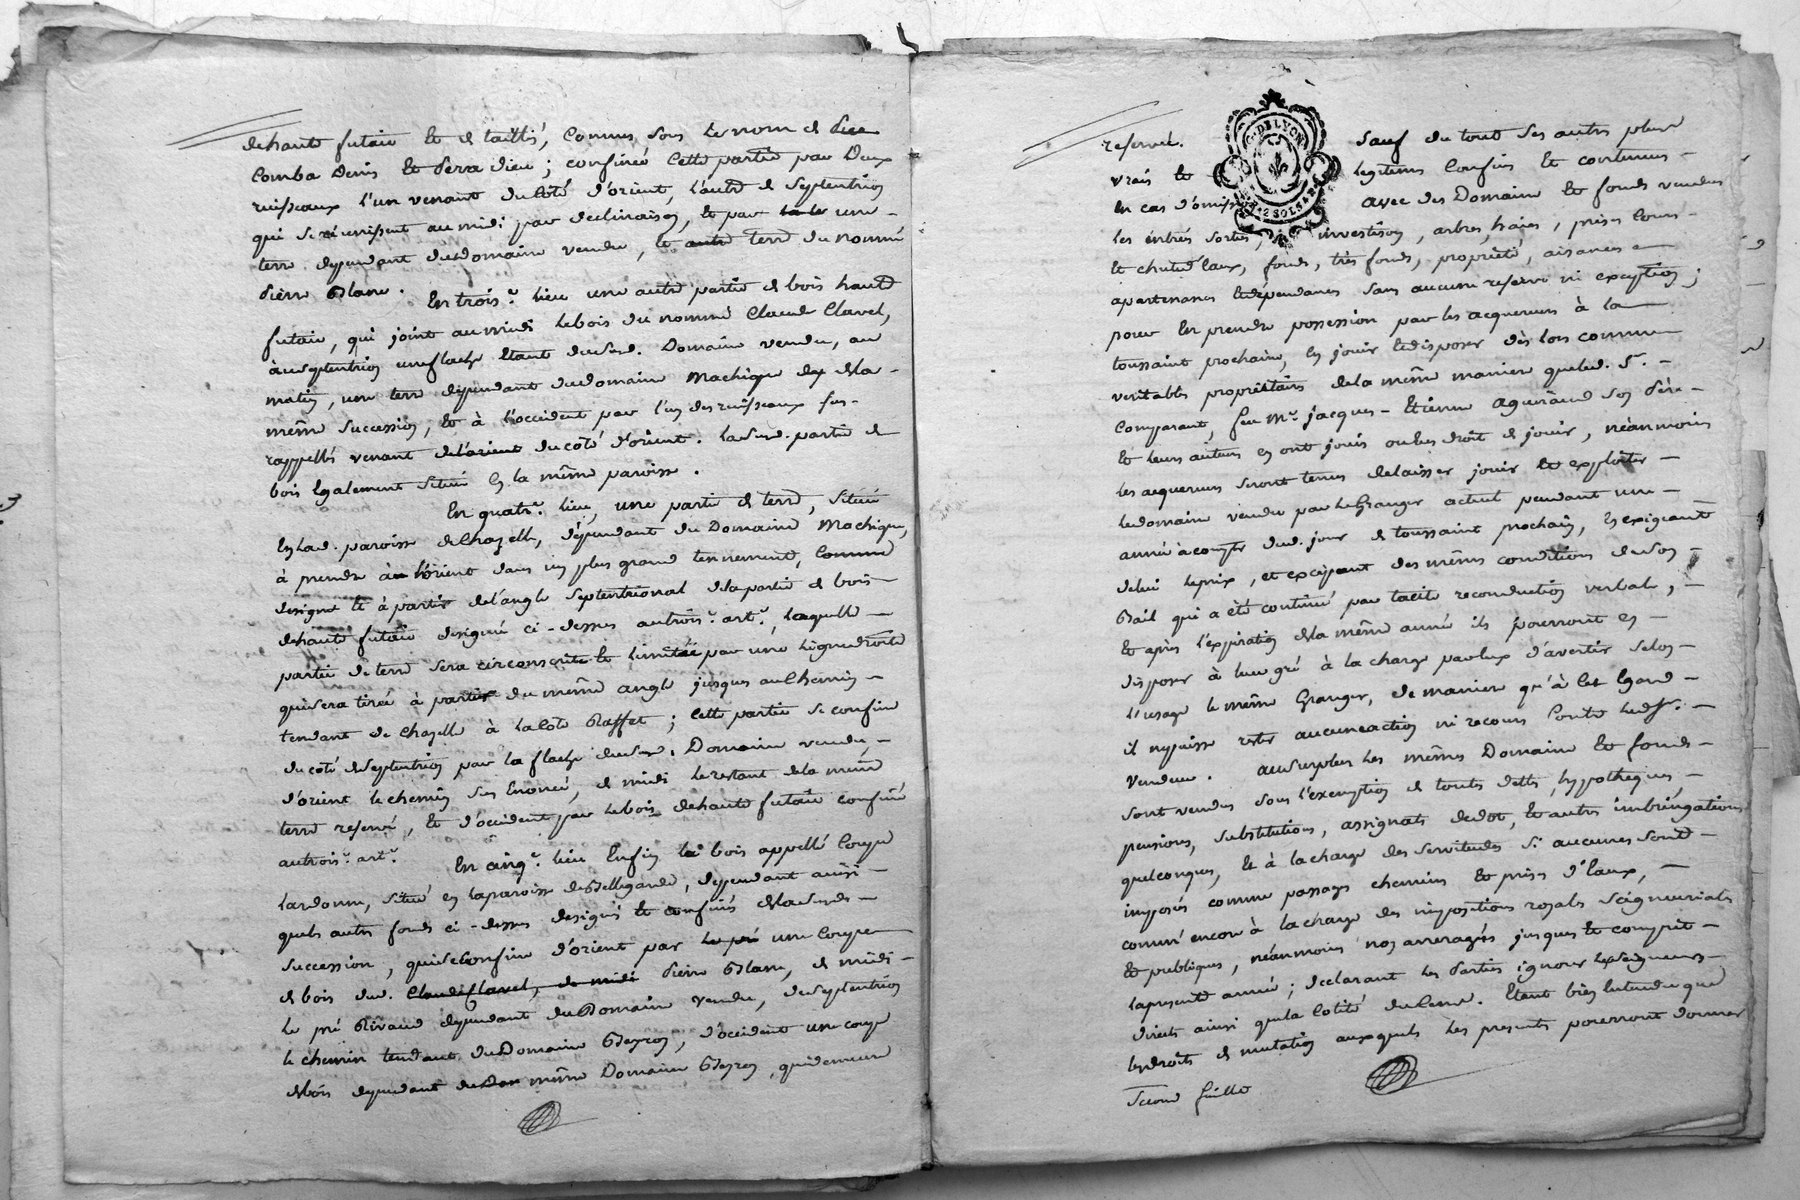 de haute futaie et de taillis, connus sous le nom de
Comba Denis et Serra Dieu ; confinée cette partie par deux
ruisseaux l'un venant du côté d'orient, l'autre de septentrion
qui se réunissent au midi par declinaison, et par une
terre dependant dud. domaine vendu, et terre du nommé
Pierre Blanc. En trois.e lieu une autre partie de bois haute
futaie, qui joint au midi le bois du nommé Claude Clavel,
au septentrion une flache etant dud. Domaine vendu, au
matin, une terre dependant du domaine Machigne de la
même succession, et à l'occident par l'un des ruisseaux sus-
rappellés venant du côté d'orient. Lasusd. partie de
bois egalement située en la même paroisse.
En quatr.e lieu, une partie de terre, située
en lad. paroisse de Chazelle, dépendant du Domaine Machigne,
à prendre à l'orient dans un plus grand tennement, comme
designé et à partir de l'angle septentrional de la partie de bois
de haute futaie designée ci-dessus au trois.e art.e, laquelle
partie de terre sera circonscrite et limitée par une ligne droite
qui sera tirée à partir du même angle jusques au chemin
tendant de Chazelle à la Côte Raffet ; cette partie se confine
du côté de septentrion par la flache dudit Domaine vendu,
d'orient le chemin sus enoncé, de midi le restant de la même
terre reservé, et d'occident par le bois de haute futaie confiné
au trois.e art.e En cinq.e lieu enfin le bois appellé Coupe
Lardonne, situé en la paroisse de Bellegarde, dependant ainsi
que les autres fonds ci-dessus designés et confinés de la susd.
succession, qui se confine d'orient par une coupe
de bois dud. Claude Clavel, de midi Pierre Blanc, de midi
le pré Rivaud dependant du Domaine vendu, de septentrion
le chemin tendant du Domaine Peyron, d'occident une coupe
de bois dependant du même Domaine Peyron, qui demeure
reservée. Sauf du tout ses autres plus
G. DE LYON
2 SOLS
vrais et legitimes confins et contenus
en cas d'omission avec des Domaine et fonds vendus
les entrées sorties, investison, arbres, haies, prises cours
et chute d'eaux, fonds, très fonds, proprieté, aisances
apartenances et dépendances sans aucune reserve ni exception ;
pour en prendre possession par les acquereurs à la
toussaint prochaine, en jouir et disposer dès lors comme
veritables proprietaires de la même maniere que led. S.r
comparant, feu M.e Jacques-Etienne Aguiraud son Pére
et leurs auteurs en ont jouis ou eu droit de jouir, néanmoins
les acquereurs seront tenus de laisser jouir et exploiter
le domaine vendu par le Granger actuel pendant une
année à compter dud. jour de toussaint prochain, en exigeant
de lui le prix, et excipant des mêmes conditions de son
Bail qui a été continué par tacite reconduction verbale,
et après l'expiration de la même année ils pourront en
disposer à leur gré à la charge par eux d'avertir selon
l'usage le même Granger, de maniere qu'à cet egard
il n'y puisse rester aucune action ni recours contre led. S.r
vendeur. Au surplus les mêmes Domaine et fonds
sont vendus sous l'exemption de toutes dettes, hypotheques,
pensions, substitutions, assignats de dot, et autres imbrigations
quelconques, et à la charge des servitudes si aucunes sont
imposés comme passages chemins et prises d'eaux,
comme encore à la charge des impositions royales seigneuriales
et publiques, néanmoins non arreragées jusques et compris
la presente année ; declarant les Parties ignorer les seigneurs
directs ainsi que la cotité du cens. Etant bien entendu que
les droits de mutation auxquels les presentes pourront donner
Second feuille